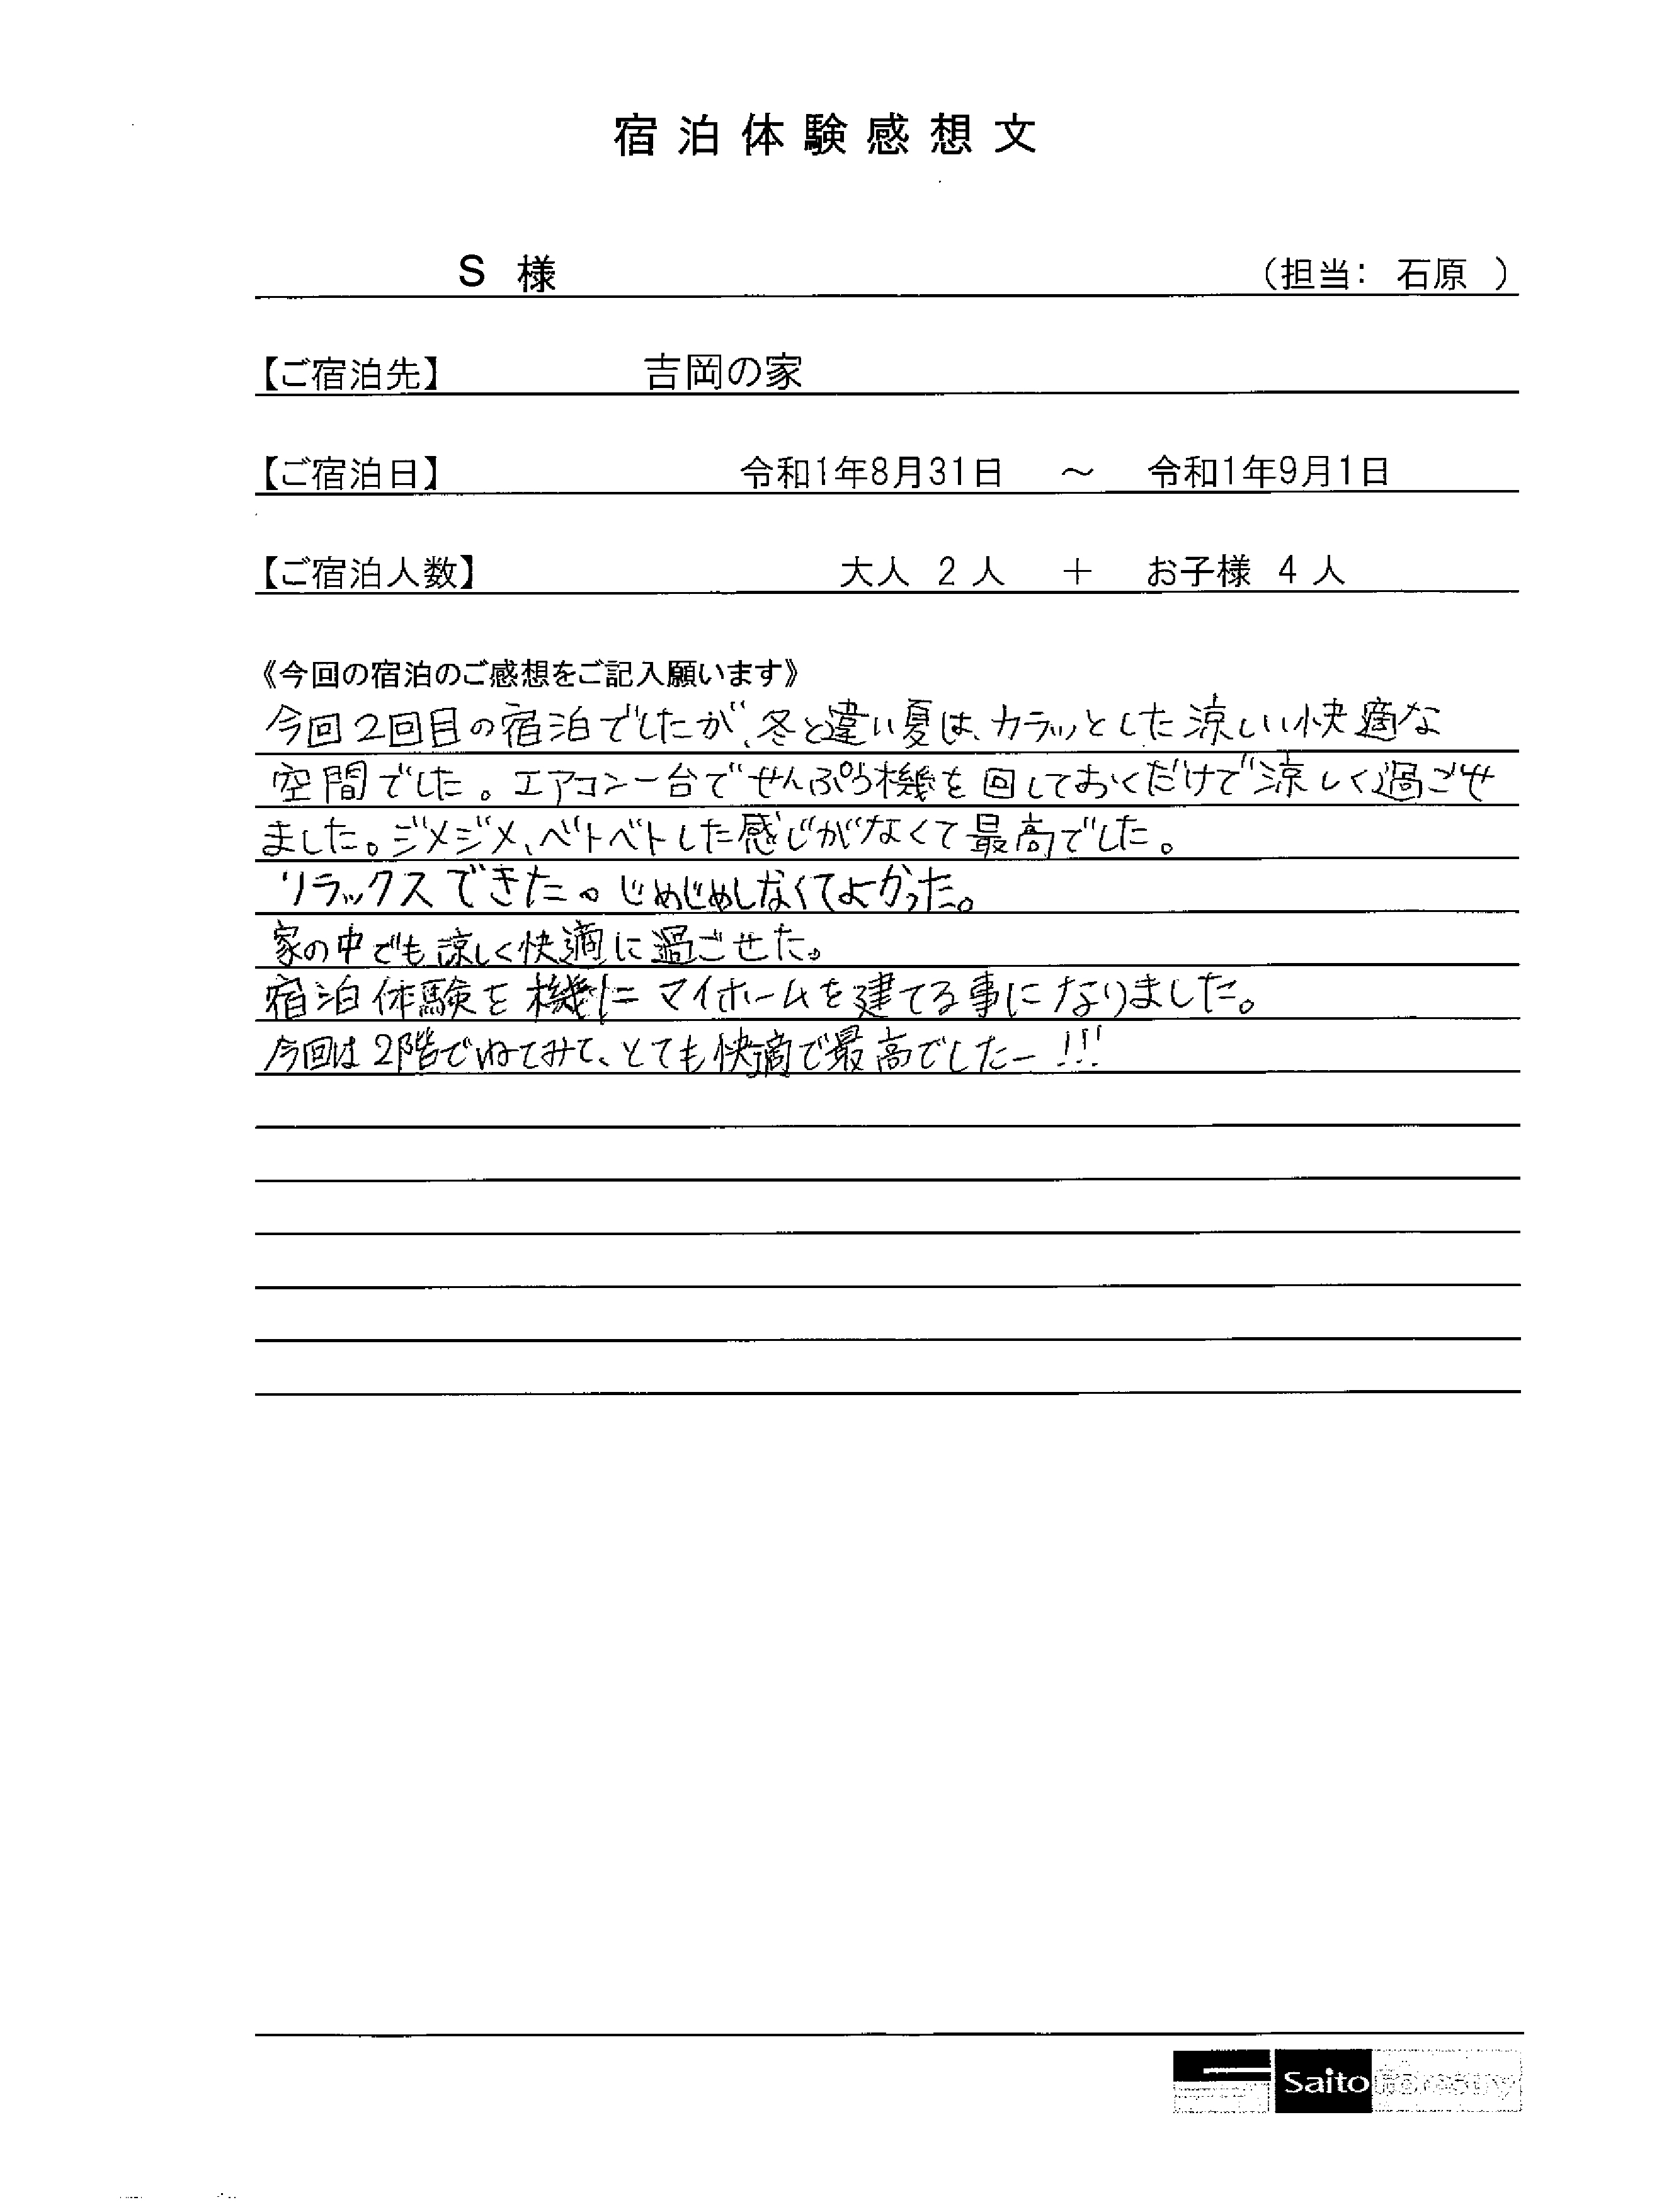 宿泊体験感想文
S 様 (担当: 石原 )
【ご宿泊先】 吉岡の家
【ご宿泊日】 令和1年8月31日 ～ 令和1年9月1日
【ご宿泊人数】 大人 2 人 ＋ お子様 4 人
《今回の宿泊のご感想をご記入願います》
今回2回目の宿泊でしたが、冬と違い夏は、カラッとした涼しい快適な
空間でした。エアコン一台でせんぷう機を回しておくだけで涼しく過ごせ
ました。ジメジメ、ベトベトした感じがなくて最高でした。
リラックスできた。じめじめしなくてよかった。
家の中でも涼しく快適に過ごせた。
宿泊体験を機にマイホームを建てる事になりました。
今回は2階でねてみて、とても快適で最高でしたー!!!
Saito forestry